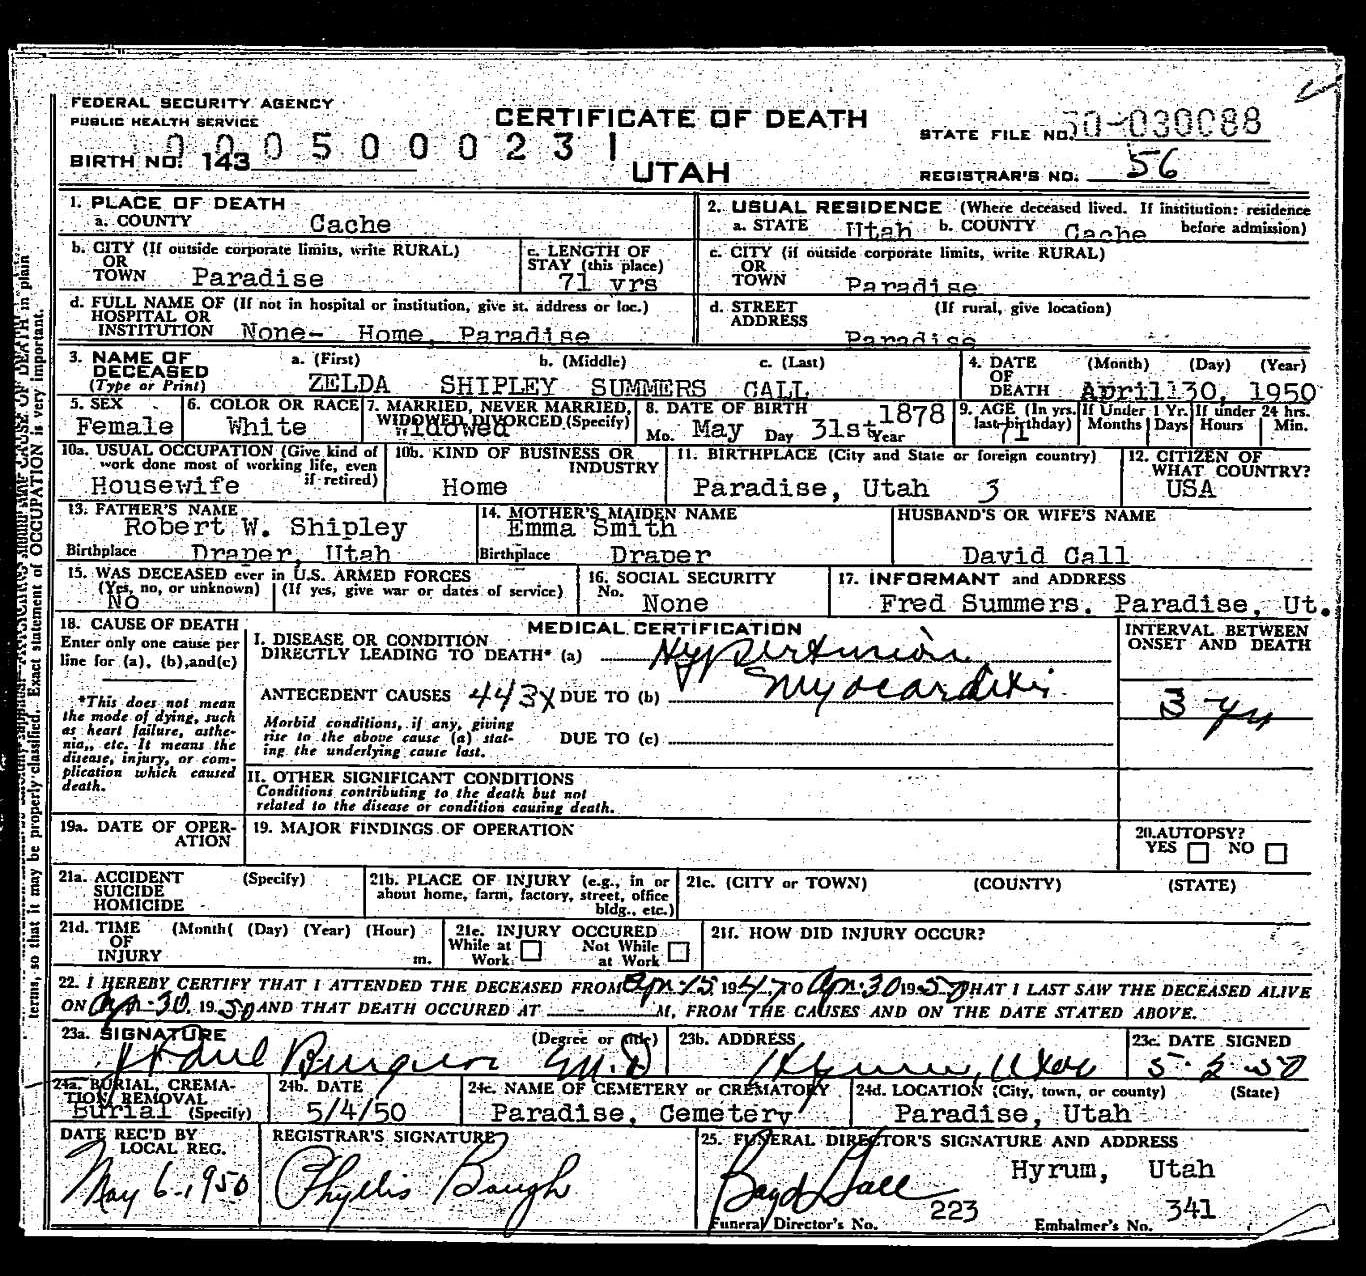 FEDERAL SECURITY AGENCY
PUBLIC HEALTH SERVICE
CERTIFICATE OF DEATH
STATE FILE NO. 50-030088
0 0 0 5 0 0 0 2 3 1
BIRTH NO. 143
UTAH
REGISTRAR'S NO. 56
1. PLACE OF DEATH
a. COUNTY Cache
2. USUAL RESIDENCE (Where deceased lived. If institution: residence
a. STATE Utah b. COUNTY Cache before admission)
b. CITY (If outside corporate limits, write RURAL)
OR
TOWN Paradise
c. LENGTH OF
STAY (this place)
71 yrs
c. CITY (if outside corporate limits, write RURAL)
OR
TOWN Paradise
d. FULL NAME OF (If not in hospital or institution, give st. address or loc.)
HOSPITAL OR
INSTITUTION None- Home, Paradise
d. STREET (If rural, give location)
ADDRESS Paradise
3. NAME OF DECEASED
(Type or Print)
a. (First) b. (Middle) c. (Last)
ZELDA SHIPLEY SUMMERS CALL
4. DATE OF DEATH
(Month) (Day) (Year)
April 30, 1950
5. SEX
Female
6. COLOR OR RACE
White
7. MARRIED, NEVER MARRIED,
WIDOWED, DIVORCED (Specify)
Widowed
8. DATE OF BIRTH 1878
Mo. May Day 31st Year
9. AGE (In yrs.
last birthday)
71
If Under 1 Yr.
Months Days
If under 24 hrs.
Hours Min.
10a. USUAL OCCUPATION (Give kind of
work done most of working life, even
if retired)
Housewife
10b. KIND OF BUSINESS OR
INDUSTRY
Home
11. BIRTHPLACE (City and State or foreign country)
Paradise, Utah 3
12. CITIZEN OF
WHAT COUNTRY?
USA
13. FATHER'S NAME
Robert W. Shipley
Birthplace Draper, Utah
14. MOTHER'S MAIDEN NAME
Emma Smith
Birthplace Draper
HUSBAND'S OR WIFE'S NAME
David Call
15. WAS DECEASED ever in U.S. ARMED FORCES
(Yes, no, or unknown) (If yes, give war or dates of service)
No
16. SOCIAL SECURITY
No. None
17. INFORMANT and ADDRESS
Fred Summers, Paradise, Ut.
18. CAUSE OF DEATH
Enter only one cause per
line for (a), (b), and (c)
*This does not mean
the mode of dying, such
as heart failure, asthe-
nia, etc. It means the
disease, injury, or com-
plication which caused
death.
MEDICAL CERTIFICATION
I. DISEASE OR CONDITION
DIRECTLY LEADING TO DEATH* (a) Hypertension
ANTECEDENT CAUSES 443X DUE TO (b) Myocarditis
Morbid conditions, if any, giving
rise to the above cause (a) stat-
ing the underlying cause last.
DUE TO (c)
II. OTHER SIGNIFICANT CONDITIONS
Conditions contributing to the death but not
related to the disease or condition causing death.
INTERVAL BETWEEN
ONSET AND DEATH
3 yrs
19a. DATE OF OPER-
ATION
19. MAJOR FINDINGS OF OPERATION
20. AUTOPSY?
YES NO
21a. ACCIDENT (Specify)
SUICIDE
HOMICIDE
21b. PLACE OF INJURY (e.g., in or
about home, farm, factory, street, office
bldg., etc.)
21c. (CITY or TOWN) (COUNTY) (STATE)
21d. TIME (Month( (Day) (Year) (Hour)
OF
INJURY m.
21e. INJURY OCCURED
While at Work Not While at Work
21f. HOW DID INJURY OCCUR?
22. I HEREBY CERTIFY THAT I ATTENDED THE DECEASED FROM Apr. 15, 1947 TO Apr. 30 1950 THAT I LAST SAW THE DECEASED ALIVE
ON Apr. 30, 1950 AND THAT DEATH OCCURED AT M, FROM THE CAUSES AND ON THE DATE STATED ABOVE.
23a. SIGNATURE (Degree or title)
Burgess M.D
23b. ADDRESS
Hyrum, Utah
23c. DATE SIGNED
5-2-50
24a. BURIAL, CREMA-
TION, REMOVAL
(Specify)
Burial
24b. DATE
5/4/50
24c. NAME OF CEMETERY or CREMATORY
Paradise, Cemetery
24d. LOCATION (City, town, or county) (State)
Paradise, Utah
DATE REC'D BY
LOCAL REG.
May 6-1950
REGISTRAR'S SIGNATURE
Phyllis Baugh
25. FUNERAL DIRECTOR'S SIGNATURE AND ADDRESS
Hyrum, Utah
Boyd Hall
Funeral Director's No. 223
Embalmer's No. 341
terms, so that it may be properly classified. Exact statement of OCCUPATION is very important.
CAUSE OF DEATH in plain